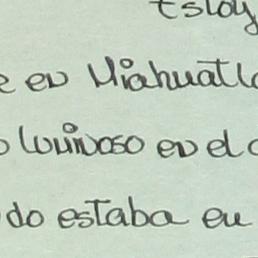 Estoy
en Miahuatl
luminoso en el
do estaba en